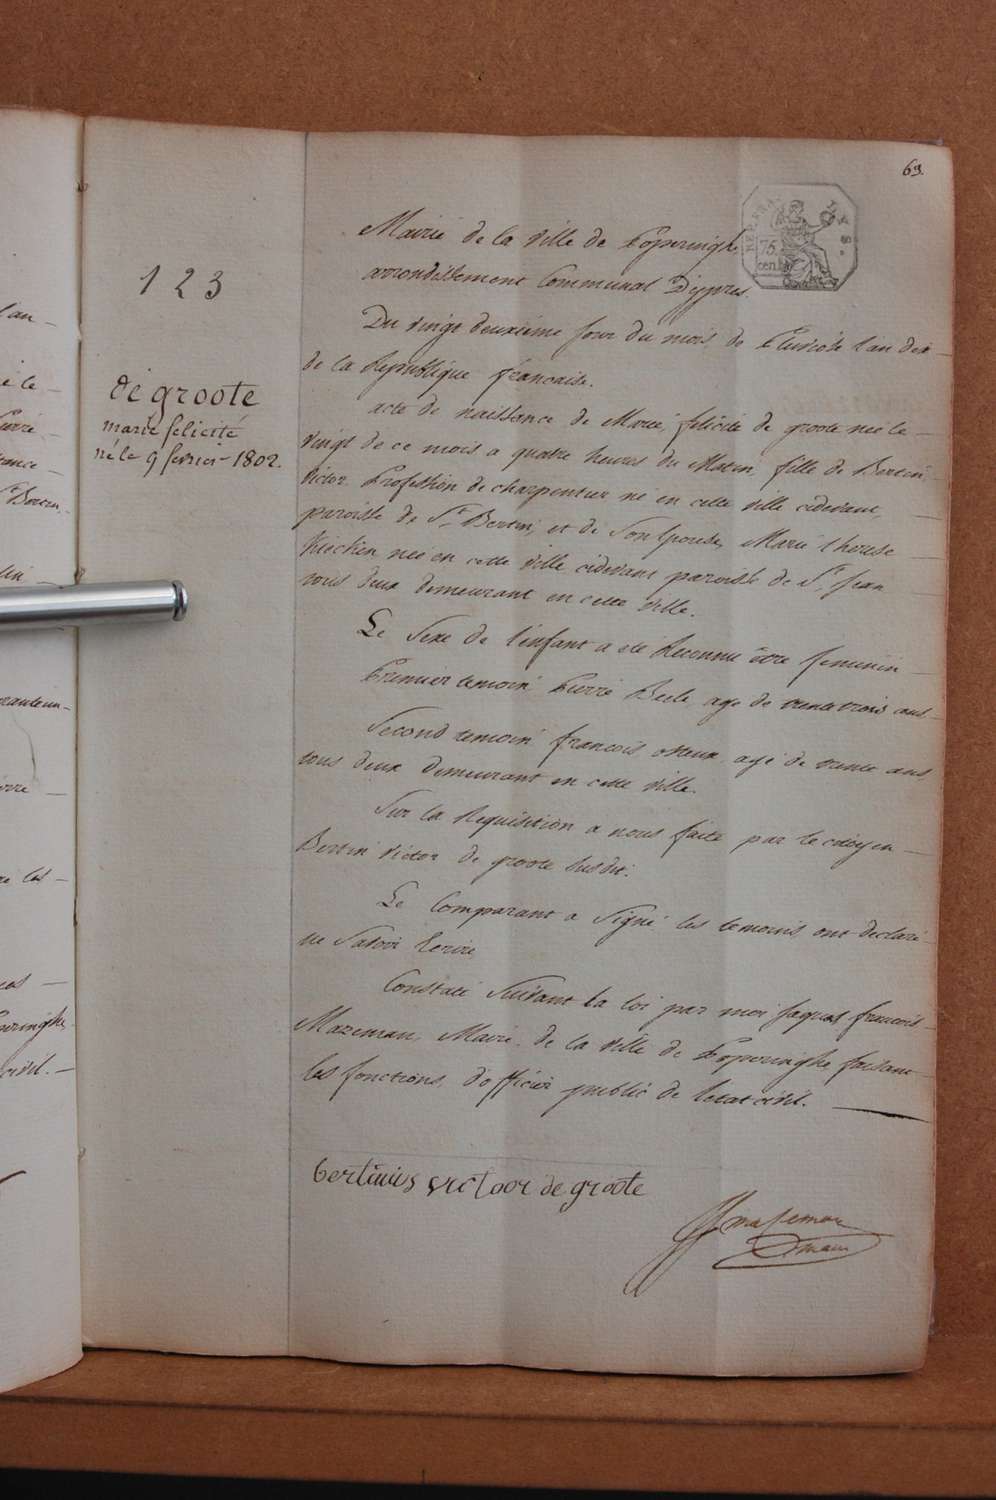 63.
REP. FRA.
75
cent.
Mairie de la Ville de Poperinghe
arrondissement Communal D'ypres.
123
Du vingt deuxieme jour du mois de Pluviose l'an dix
de la Republique francaise.
de groote
marie felicité
né le 9 fevrier 1802.
acte de naissance de Marie felicité de groote née le
vingt de ce mois a quatre heures du Matin fille de Bertin
Victor Profession de charpentier né en cette ville cidevant
paroisse de St. Bertin, et de Son Epouse Marie therese
née en cette Ville cidevant paroisse de St. Jean
tous deux demeurant en cette Ville.
Le Sexe de l'enfant a eté Reconnu être feminin
Premier temoin Pierre Beele agé de trente trois ans
Second temoin francois agé de trente ans
tous deux demeurant en cette Ville.
Sur la Requisition a nous faite par le citoyen
Bertin Victor de groote Susdit.
Le Comparant a Signé les temoins ont declaré
ne Savoir Ecrire
Constaté Suivant la loi par moi Jaques francois
Mazeman, Maire de la Ville de Poperinghe faisant
les fonctions d'officier public de l'etat civil.
bertinus victoor de groote
maseman
maire